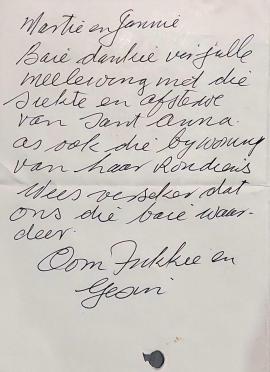 Martie en Jannie
Baie dankie vir julle
meelewing met die
siekte en afsterwe
van Sant Anna.
as ook die bywoning
van haar Rondiens
Wees verseker dat
ons die baie waar-
deer.
Oom Fukkie en